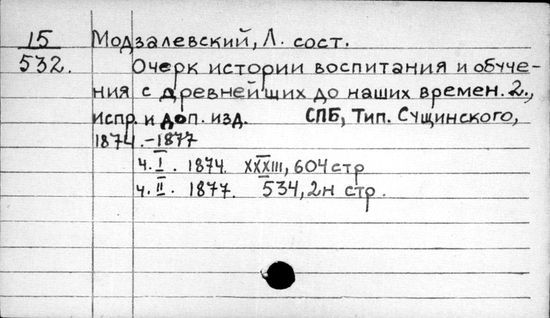 15 Модзалевский, Л. сост.
532. Очерк истории воспитания и обуче-
ния с древнейших до наших времен. 2.,
испр. и доп. изд. СПБ, Тип. Сущинского,
1874.-1877
ч. I. 1874. XXXIII, 604 стр
ч. II. 1877. 534, 2н стр.